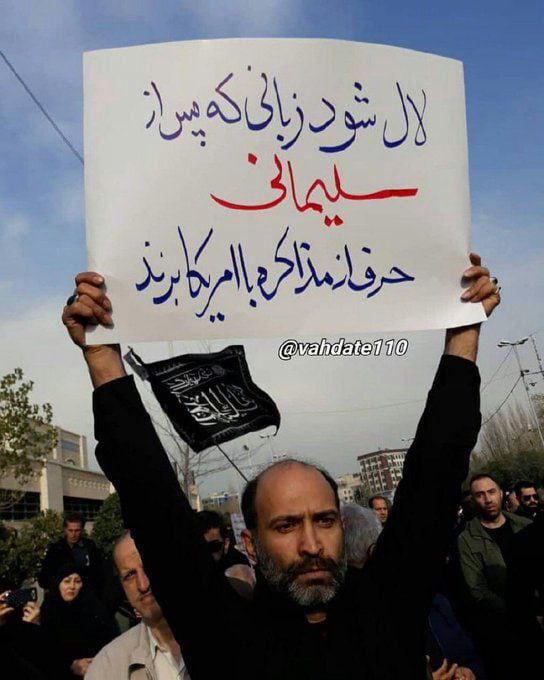 لال شود زبانی که پس از
سلیمانی
حرف از مذاکره با امریکا بزند
@vahdate110